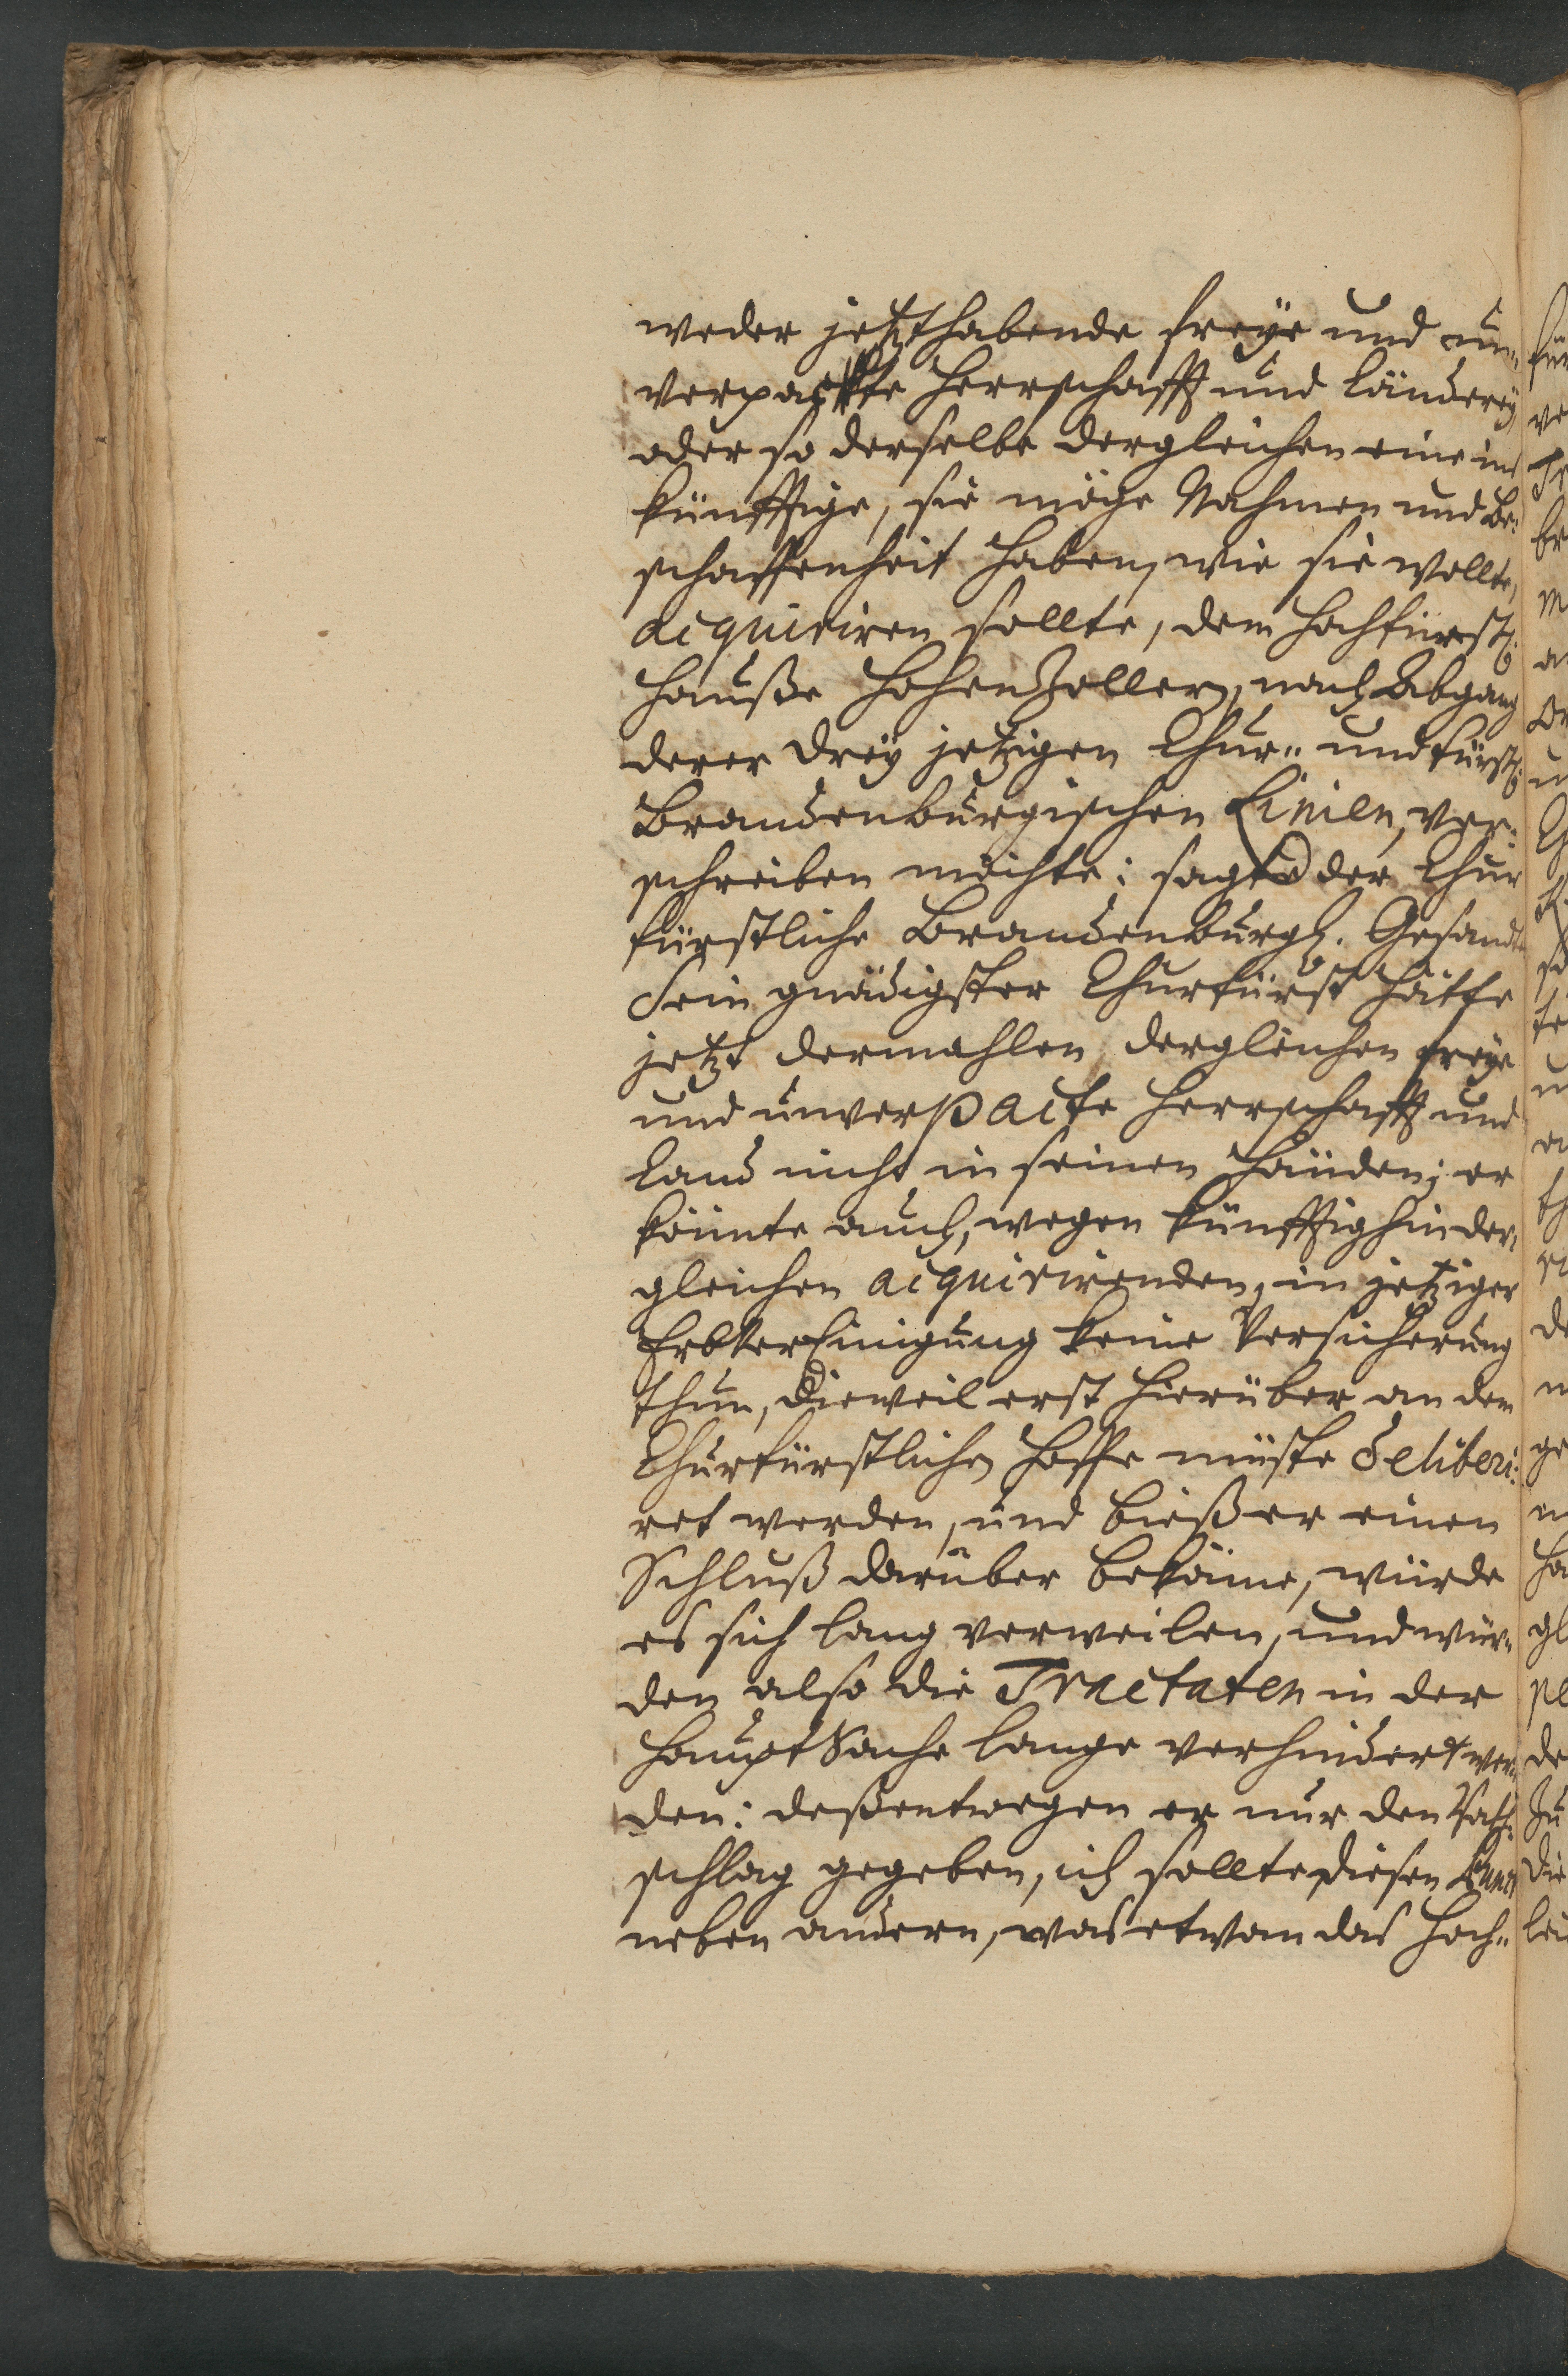 weder jetzthabende freÿe und un„
verpackte Herrschafft und Ländereÿ,
oder so derselbe dergleichen eine ins
künfftige, sie möge Nahmen und Be„
schaffenheit haben, wie sie wollte,
acquiriren sollte, dem Hochfürstl:
Hauße HohenZollern, nach Abgang
derer dreÿ jetzigen Chur„ und fürstl:
Brandenburgischen Linien, ver„
schreiben möchte: sagte der Chur
fürstliche Brandenburgl. Gesandte
Sein gnädigster Churfürst hätte
jetzt dermahlen dergleichen freÿe
und unverpacte Herrschafft und
Land nicht in seinen Händen; er
könnte auch, wegen künfftighin der„
gleichen acquirirenden, in jetziger
ErbVerEinigung keine Versicherung
thun, Dieweil erst hierüber an dem
Churfürstlichen Hoffe müste deliberi„
ret werden, und bieß er einen
Schluß darüber bekäme, würde
es sich lang verweilen, und wür„
den also die Tractaten in der
HauptSache lange verhindert wer„
den: deßentwegen er nur den Rath„
schlag gegeben, ich sollte diesen Punct
neben andern, was etwan das Hoch„